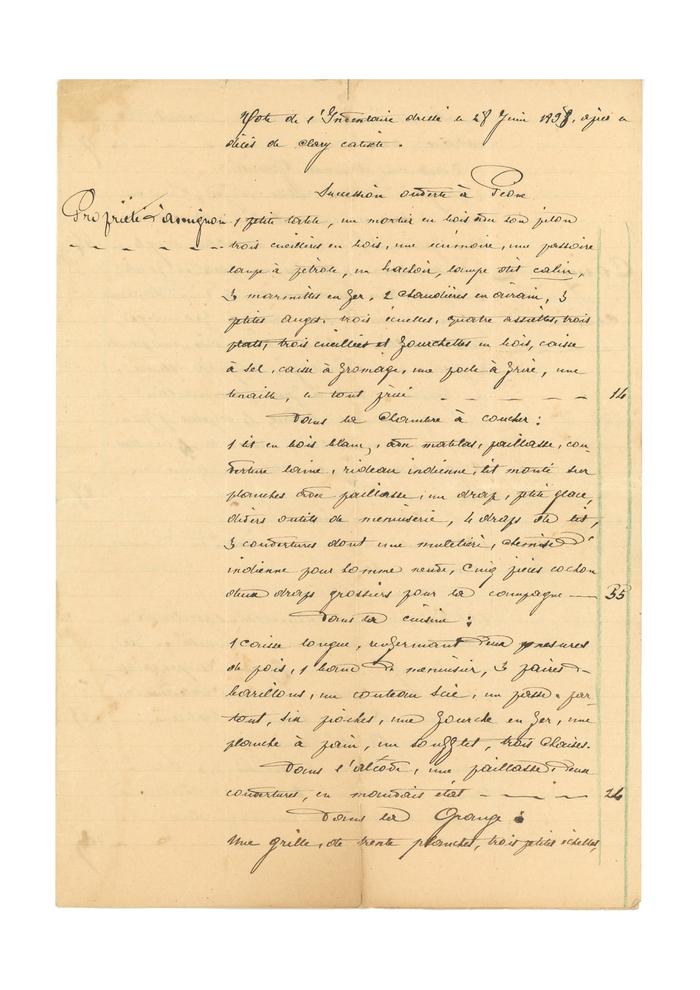 Note de l'Inventaire dressé le 28 Juin 1898, après le
décès de Clary Calixte.
Succession ouverte à Péone
Propriété d'amignon
1 petite table, un mortier en bois avec son pilon
trois cueillères en bois, une écumoire, une passoire
lampe à pétrole, un hachoir, lampe dit calin,
3 marmittes en fer, 2 chaudières en airain, 3
petites auges, trois écuelles, quatre assiettes, trois
plats, trois cueillères et fourchettes en bois, caisse
à sel, caisse à fromage, une poële à frire, une
tenaille, le tout prisé 14
Dans la Chambre à coucher :
1 lit en bois blanc, avec matelas, paillasse, cou-
verture laine, rideau indienne, lit monté sur
planches avec paillasse, un drap, petite glace,
divers outils de menuiserie, 4 draps de lit,
3 couvertures dont une muletière, chemise d'
indienne pour homme neuve, cinq pièces cochon
deux draps grossiers pour la campagne 35
Dans la cuisine :
1 caisse longue, renfermant deux mesures
de pois, 1 banc de menuisier, 3 paires de
barillons, un couteau scie, un passe-par-
tout, six pioches, une fourche en fer, une
planche à pain, un soufflet, trois chaises.
Dans l'alcôve, une paillasse, deux
couvertures, en mauvais état 26
Dans la Grange :
Une grille, de trente planches, trois petites échelles,